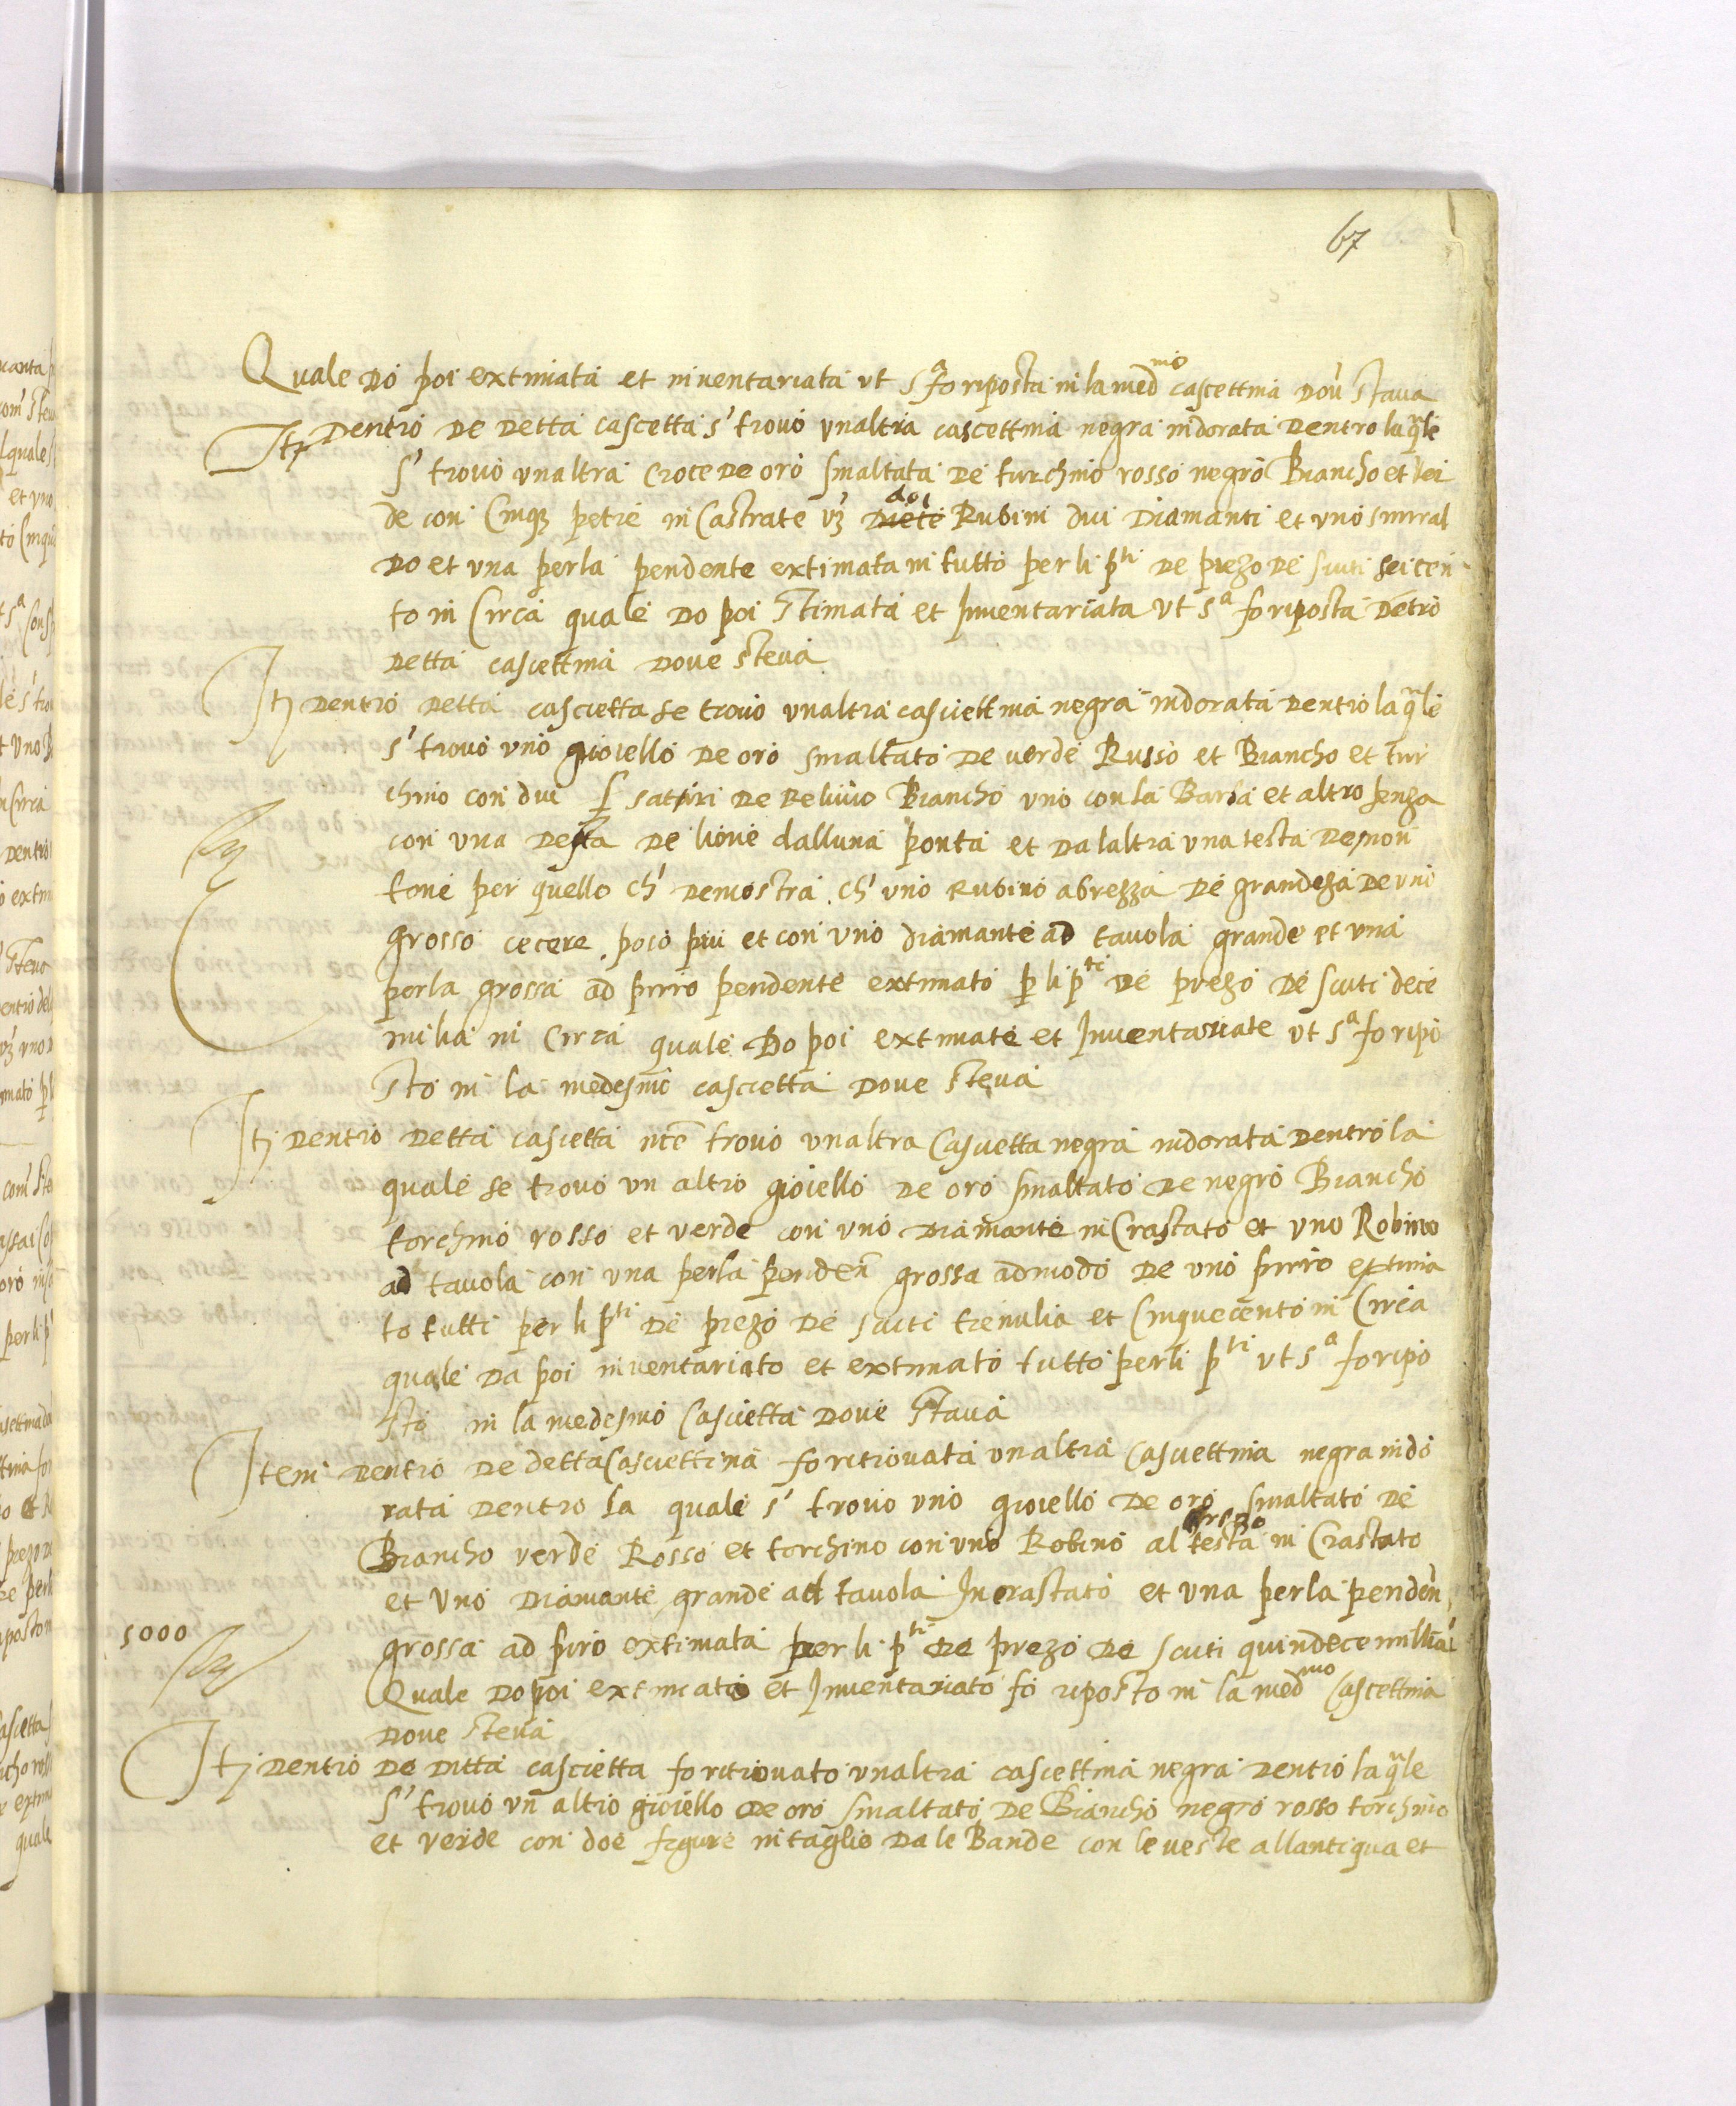 67
Quale do poi extimata et inventariata ut sª fo riposta in la medmo cascettina dov' stava
Itē dentro de detta cascetta s' trovò unaltra cascettina negra indorata dentro laqle
s' trovò unaltra croce de oro smaltata de turchino rosso negro Biancho et ver
de con Cinq petre in Castrate vz doi Rubini dui Diamanti et uno smiral
do et una perla pendente extimata in tutto per li pti de prezo de scuti seicen
to in Circa quale do poi stimata et Inventariata ut sª fo riposta detro
detta cascettina dove steva
Itē dentro detta cascietta se trovò unaltra casciettina negra indorata dentro laqle
s' trovò uno gioiello de oro smaltato de verde Russo et Biancho et tur
chino con dui satiri de Relivio Biancho uno con la Barba et altro senza
con una testa de lione dalluna ponta et dalaltra una testa de mon
tone per quello ch' demostra ch' uno Rubino abrezza de grandeza de uno
grosso cecere poco piu et con uno diamante ad tavola grande et una
perla grossa ad pirro pendente extimato p li pti de prezo de scuti dece
milia in Circa quale do poi extimate et Inventariate ut sª fo ripo
sto in la medesmo cascietta dove steva
Itē dentro detta cascietta ince trovò unaltra Cascietta negra indorata dentro la
quale se trovò un altro gioiello de oro smaltato de negro Biancho
torchino rosso et verde con uno diamante in Crastato et uno Robino
ad tavola con una perla penden grossa admodo de uno pirro extima
to tutti per li pti de prezo de scuti tremilia et Cinquecento in Circa
quale da poi inventariato et extimato tutto per li pti ut sª fo ripo
sto in la medesmo Cascietta dove stava
Item dentro de detta Casciettina fo ritrovata unaltra Casciettina negra indo
rata dentro la quale s' trovò uno gioiello de oro smaltato de
Biancho verde Rosso et torchino con uno Robino al testa in Crastato
et Uno diamante grande ad tavola Incrastato et una perla penden
5000
grossa ad piro extimata per li pti de prezo de scuti quindece millia
Quale do poi extimato et Inventariato fo riposto in la medmo Cascettina
dove steva
Itē dentro de ditta cascietta fo ritrovato unaltra cascettina negra dentro laqle
s' trovò un altro gioiello de oro smaltato de Biancho negro rosso torchino
et verde con doe figure intaglio da le Bande con le veste allantiqua et